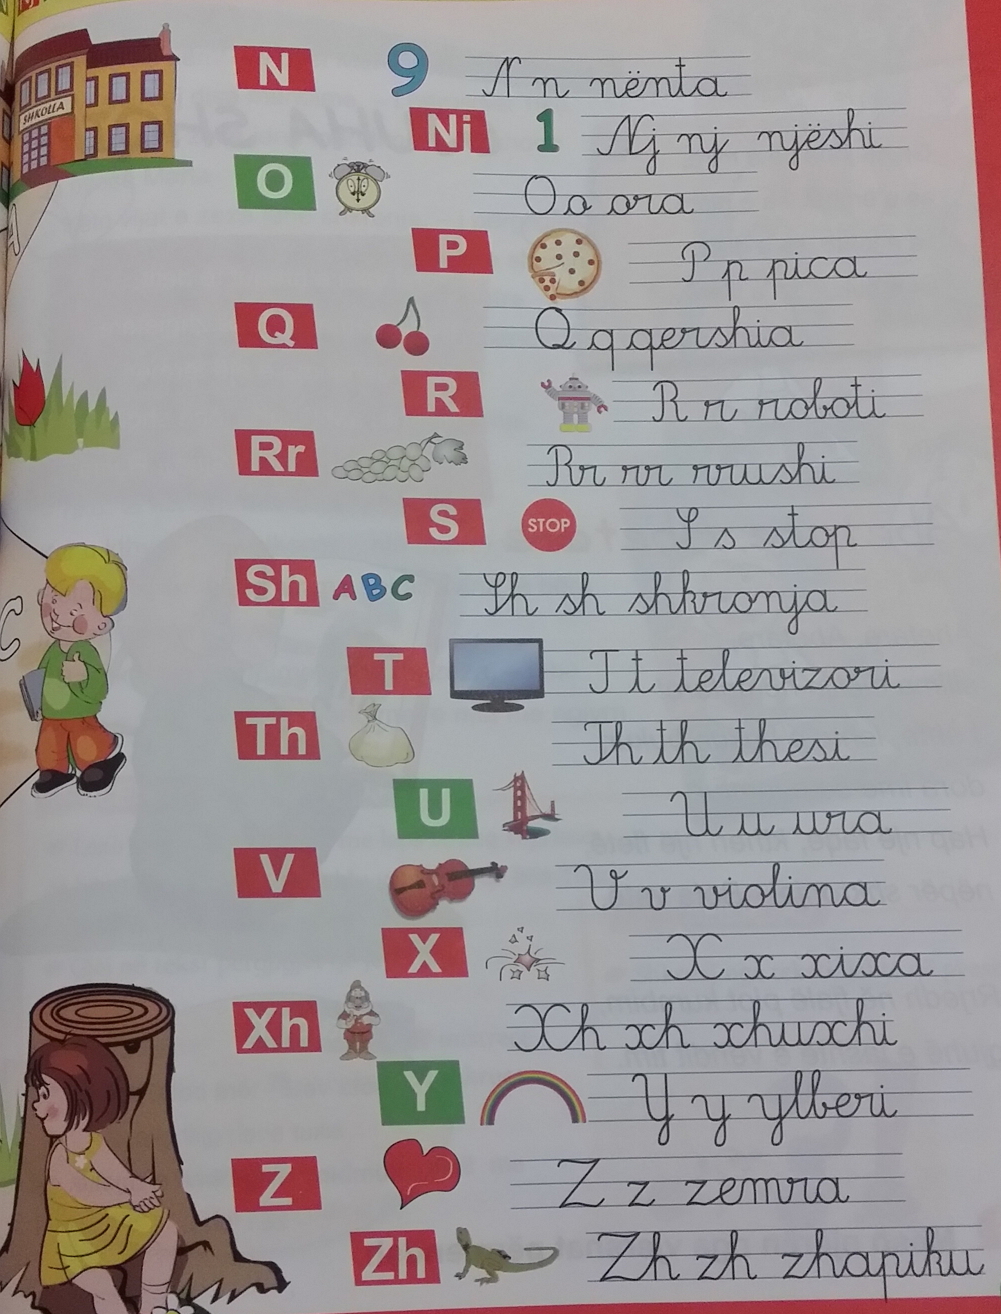 SHKOLLA
N 9 N n nënta
Nj 1 Nj nj njëshi
O O o ora
P P p pica
Q Q q qershia
R R r roboti
Rr Rr rr rrushi
S STOP S s stop
Sh ABC Sh sh shkronja
T T t televizori
Th Th th thesi
U U u ura
V V v violina
X X x xixa
Xh Xh xh xhuxhi
Y Y y ylberi
Z Z z zemra
Zh Zh zh zhapiku